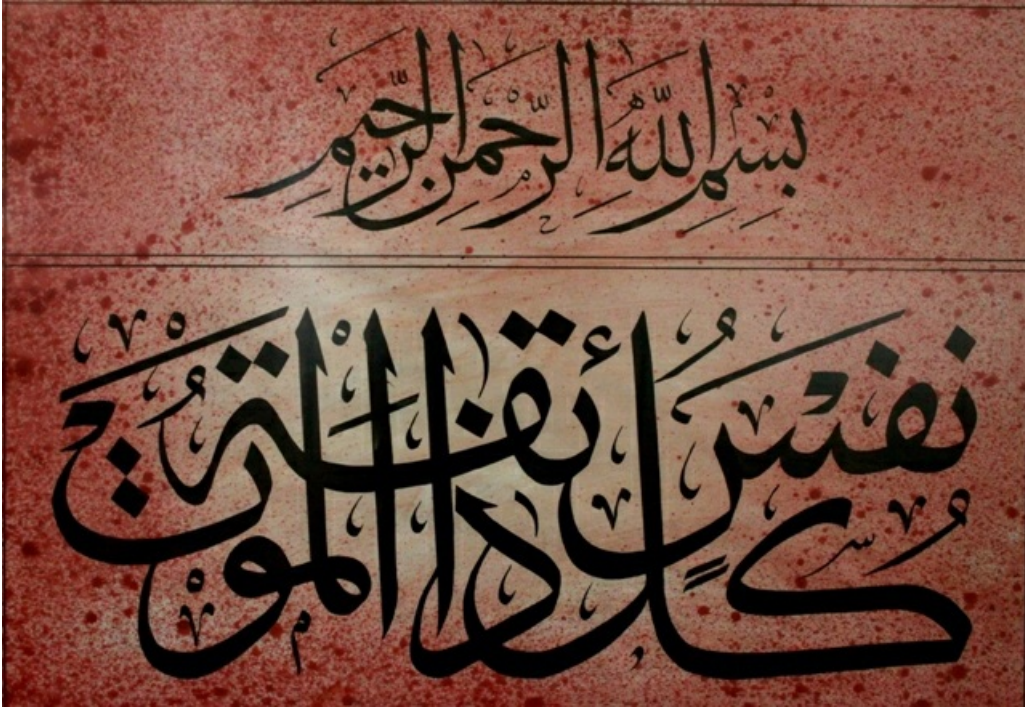 بِسْمِ اللَّهِ الرَّحْمَٰنِ الرَّحِيمِ
كُلُّ نَفْسٍ ذَائِقَةُ الْمَوْتِ